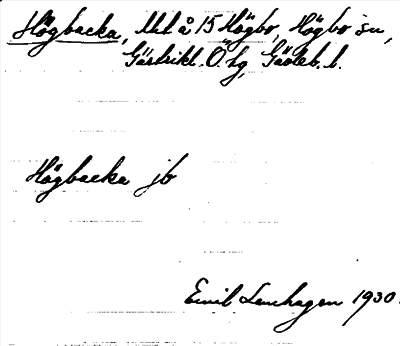 Högbacka, lht å 15 Högbo, Högbo sn,
Gästrikl. Ö. hg, Gävleb. l.
Högbacka jb
Emil Lenhagen 1930.